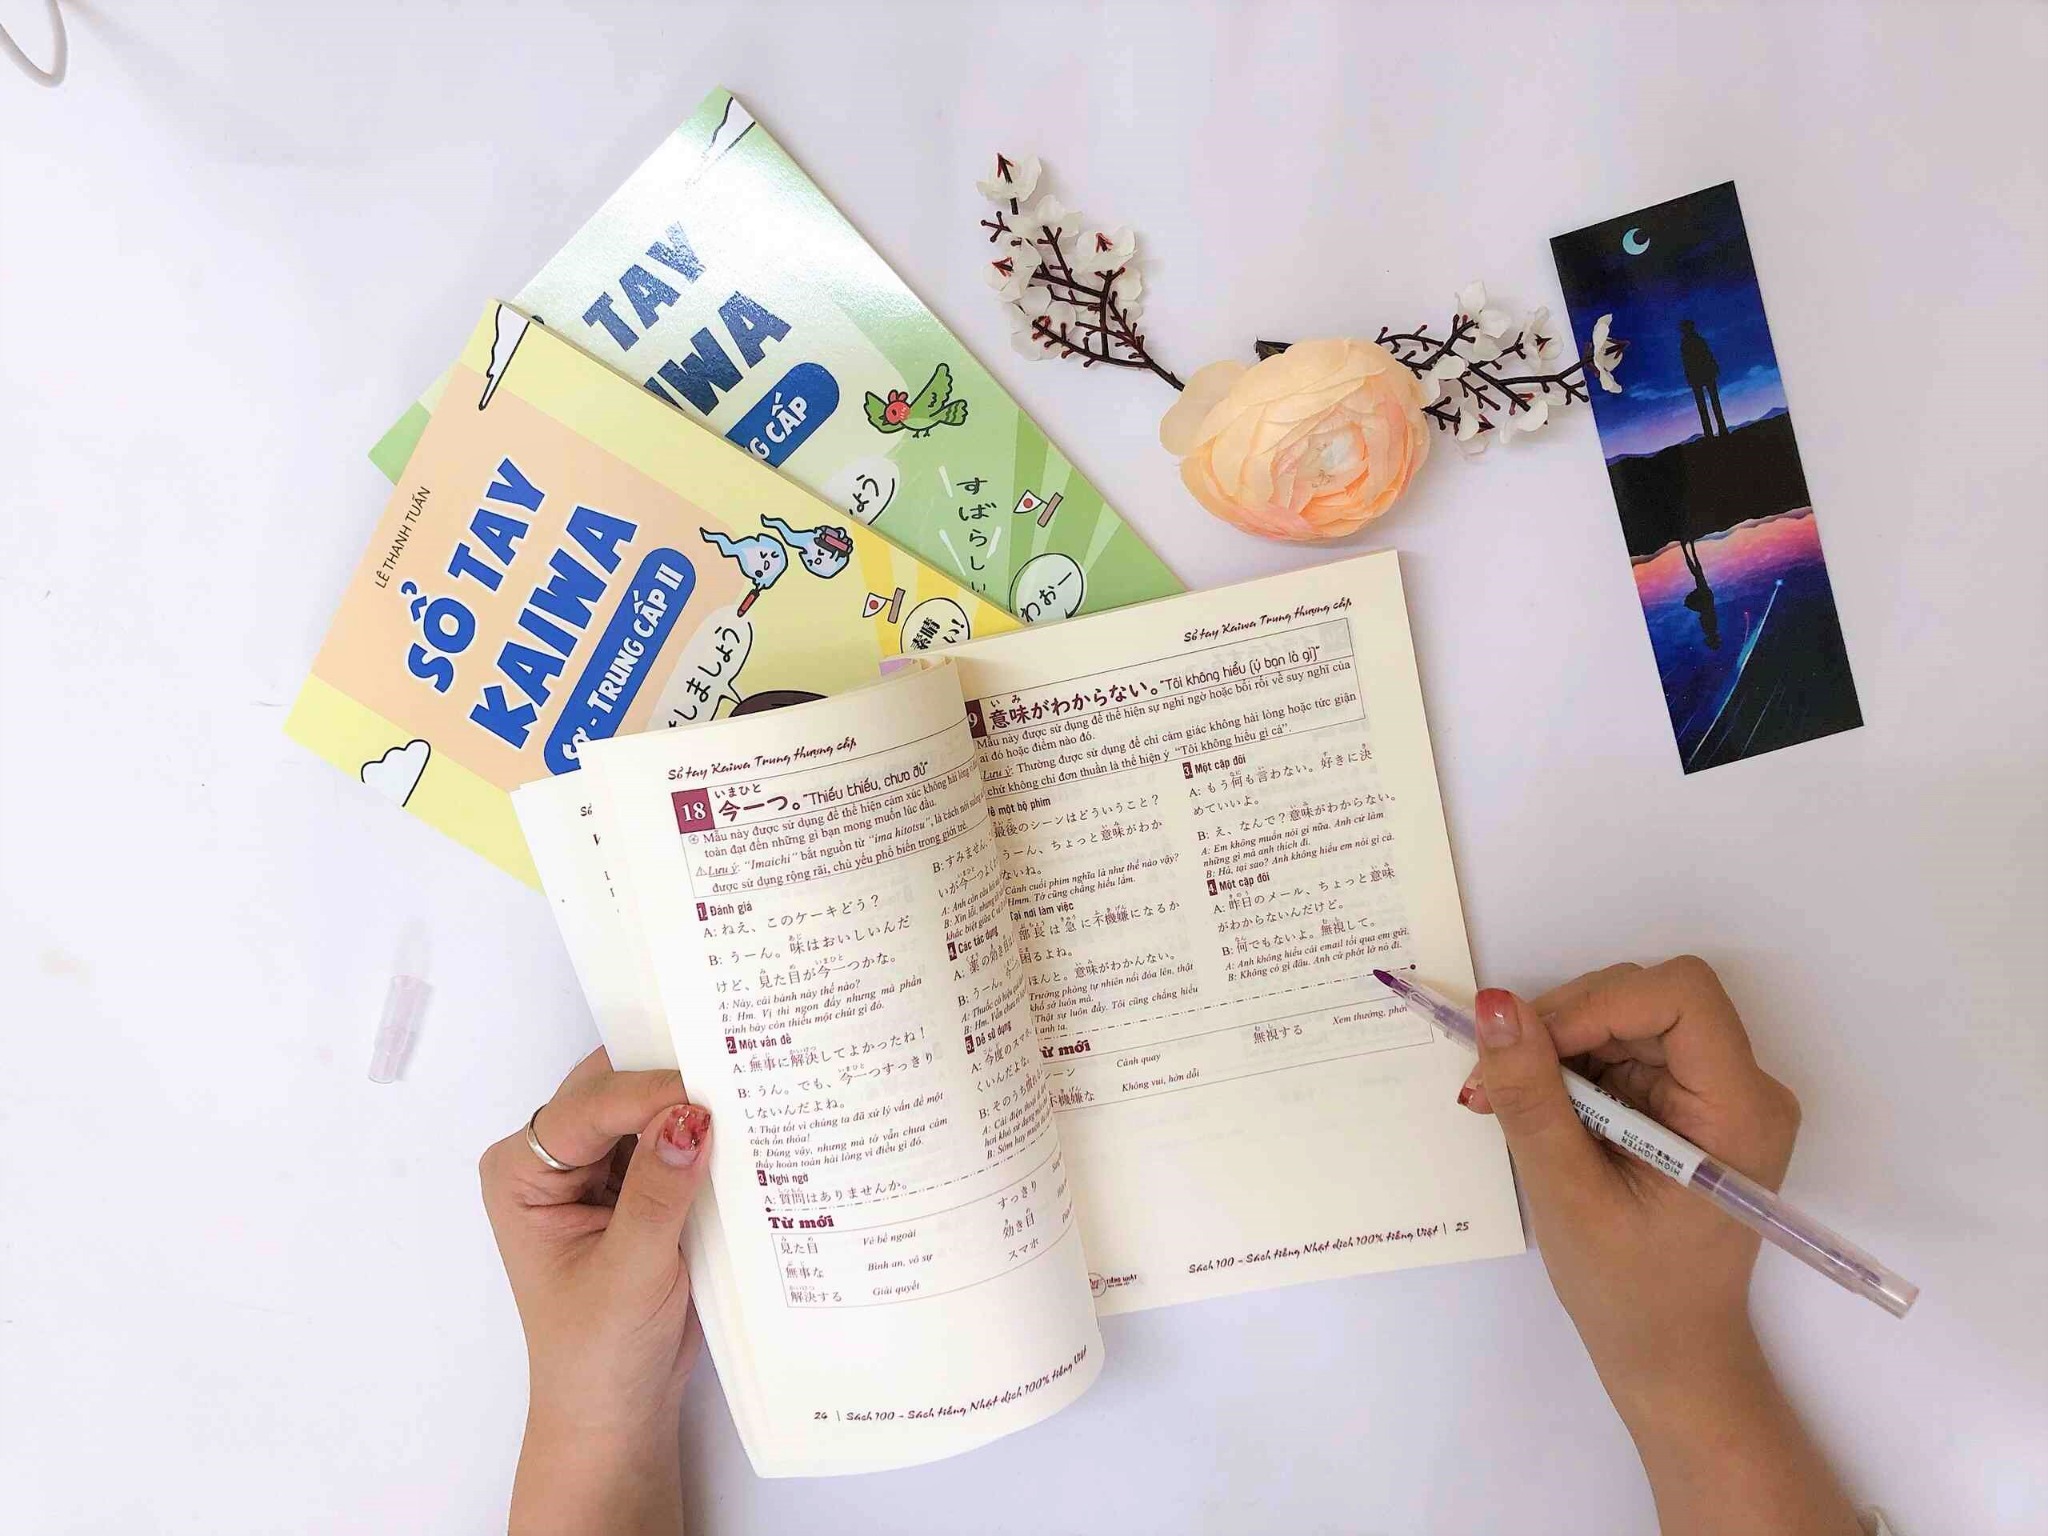 TAY
IWA
NG CẤP
しょう
すばらしい
わおー
LÊ THANH TUẤN
SỔ TAY
KAIWA
SƠ - TRUNG CẤP II
しましょう
素晴
い!
Sổ tay Kaiwa Trung thượng cấp
18 今一つ。"Thiếu thiếu, chưa đủ"
いまひと
Mẫu này được sử dụng để thể hiện cảm xúc không hài lòng
toàn đạt đến những gì bạn mong muốn lúc đầu.
Lưu ý: "Imaichi" bắt nguồn từ "ima hitotsu", là cách nói
được sử dụng rộng rãi, chủ yếu phổ biến trong giới trẻ.
1. Đánh giá
A: ねえ、このケーキどう？
B: うーん。味はおいしいんだ
けど、見た目が今一つかな。
A: Này, cái bánh này thế nào?
B: Hm. Vị thì ngon đấy nhưng mà phần
trình bày còn thiếu một chút gì đó.
2 Một vấn đề
A: 無事に解決してよかったね！
B: うん。でも、今一つすっきり
しないんだよね。
A: Thật tốt vì chúng ta đã xử lý vấn đề một
cách ổn thỏa!
B: Đúng vậy, nhưng mà tớ vẫn chưa cảm
thấy hoàn toàn hài lòng vì điều gì đó.
3. Nghi ngờ
A: 質問はありませんか。
B: すみません。
いが今一つよく
4 Các tác dụng
A: 薬の効き目
B: うーん。今一
5. Dễ sử dụng
A: 今度のスマ
くいんだよな
B: そのうち慣れ
Từ mới
見た目 Vẻ bề ngoài すっきり
無事な Bình an, vô sự 効き目
解決する Giải quyết スマホ
24 | Sách 100 - Sách tiếng Nhật dịch 100% tiếng Việt
Sổ tay Kaiwa Trung thượng cấp
いみ
9 意味がわからない。"Tôi không hiểu (ý bạn là gì)"
Mẫu này được sử dụng để thể hiện sự nghi ngờ hoặc bối rối về suy nghĩ của
ai đó hoặc điểm nào đó.
Lưu ý: Thường được sử dụng để chỉ cảm giác không hài lòng hoặc tức giận
chứ không chỉ đơn thuần là thể hiện ý "Tôi không hiểu gì cả".
ề một bộ phim
最後のシーンはどういうこと？
うーん、ちょっと意味がわか
ないね。
Cảnh cuối phim nghĩa là như thế nào vậy?
Hmm. Tớ cũng chẳng hiểu lắm.
Tại nơi làm việc
部長は急に不機嫌になるか
困るよね。
ほんと。意味がわかんない。
Trưởng phòng tự nhiên nổi đóa lên, thật
khổ sở luôn mà.
Thật sự luôn đấy. Tôi cũng chẳng hiểu
anh ta.
3 Một cặp đôi
A: もう何も言わない。好きに決
めていいよ。
B: え、なんで？意味がわからない。
A: Em không muốn nói gì nữa. Anh cứ làm
những gì mà anh thích đi.
B: Hả, tại sao? Anh không hiểu em nói gì cả.
4. Một cặp đôi
A: 昨日のメール、ちょっと意味
がわからないんだけど。
B: 何でもないよ。無視して。
A: Anh không hiểu cái email tối qua em gửi.
B: Không có gì đâu. Anh cứ phớt lờ nó đi.
Từ mới
シーン Cảnh quay 無視する Xem thường, phớt
不機嫌な Không vui, hờn dỗi
TIẾNG NHẬT
Sách 100 - Sách tiếng Nhật dịch 100% tiếng Việt | 25
HIGHLIGHTER